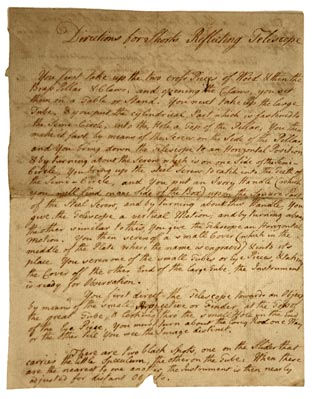 Directions for Shorts Reflecting Telescope
You first take up the two cross Pieces of Wood & then the
Brass Pillar & Claws, and opening the Claws, you set
them on a Table or Stand. You next take up the large
Tube, & you put the cylindrical Part which is fastened to
the Semi Circle, into the Hole a Top of the Pillar, You then
make it fast by means of the Screw on the Side of the Pillar
and you bring down the Telescope to an Horizontal Position
& by turning about the Screw which is on one Side of the Semi
Circle, You bring up the Steel Screw to catch into the Teeth of
the Semi Circle, and you put an Ivory Handle (which
you will find in one Side of the Box) upon the square Part
of the Steel Screw, and by turning about that Handle, You
give the Telescope a vertical Motion, and by turning about
the other similar to that You give the Telescope an Horizontal
Motion. You then unscrew a small Cover (which in the
middle of the Plate where the name is engraved) & into its
place You screw one of the small Tubes or Eye Pieces & taking
the Cover off the other End of the large Tube the Instrument
is ready for Observation.
You first direct the Telescope towards an Object
by means of the small or Finder, at the Top of
the great Tube, & looking thro the small Hole in the End
of the Eye Piece, You must turn about the long Rod one Way
or the other till You see the Image distinct.
There are two black Spots one on the Slider that
carries the little Speculum, the other on the Tube. When these
are the nearest to one another, the Instrument is then nearly
adjusted for distant